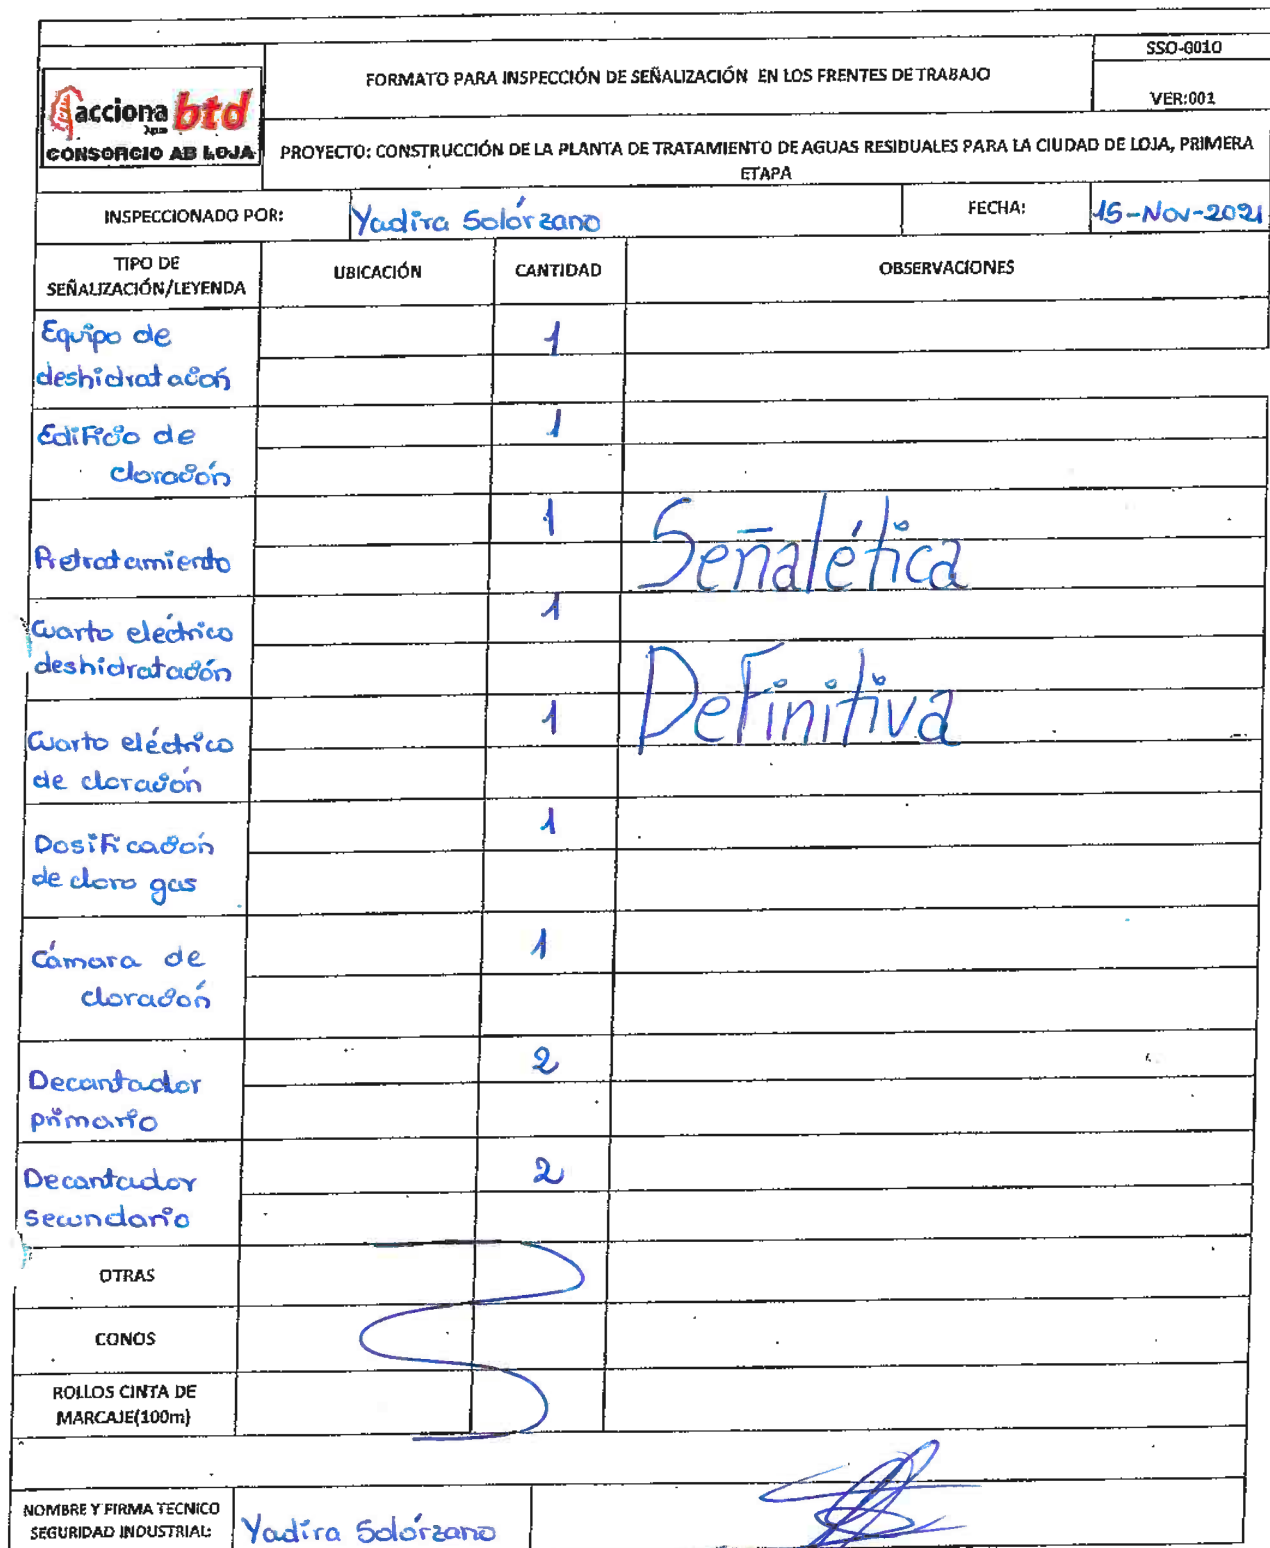 SSO-0010
FORMATO PARA INSPECCIÓN DE SEÑALIZACIÓN EN LOS FRENTES DE TRABAJO
VER:001
acciona btd
Agua
CONSORCIO AB LOJA
PROYECTO: CONSTRUCCIÓN DE LA PLANTA DE TRATAMIENTO DE AGUAS RESIDUALES PARA LA CIUDAD DE LOJA, PRIMERA
ETAPA
INSPECCIONADO POR: Yadira Solórzano FECHA: 15-Nov-2021
TIPO DE
SEÑALIZACIÓN/LEYENDA UBICACIÓN CANTIDAD OBSERVACIONES
Equipo de 1
deshidratación
Edificio de 1
cloración
Pretratamiento 1 Señalética
Cuarto eléctrico 1
deshidratación Definitiva
Cuarto eléctrico 1
de cloración
Dosificación 1
de cloro gas
Cámara de 1
cloración
Decantador 2
primario
Decantador 2
Secundario
OTRAS
CONOS
ROLLOS CINTA DE
MARCAJE(100m)
NOMBRE Y FIRMA TECNICO
SEGURIDAD INDUSTRIAL: Yadira Solórzano